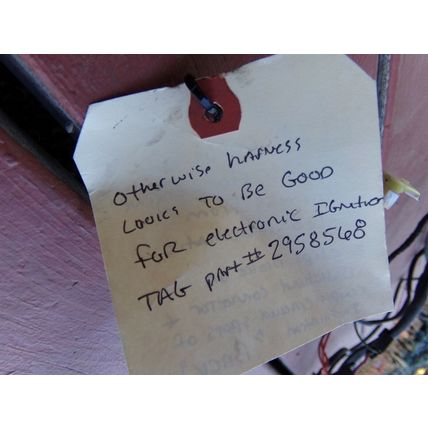 Otherwise HARNESS
LOOKS TO BE GOOD
FOR electronic IGNition
TAG part # 2958568